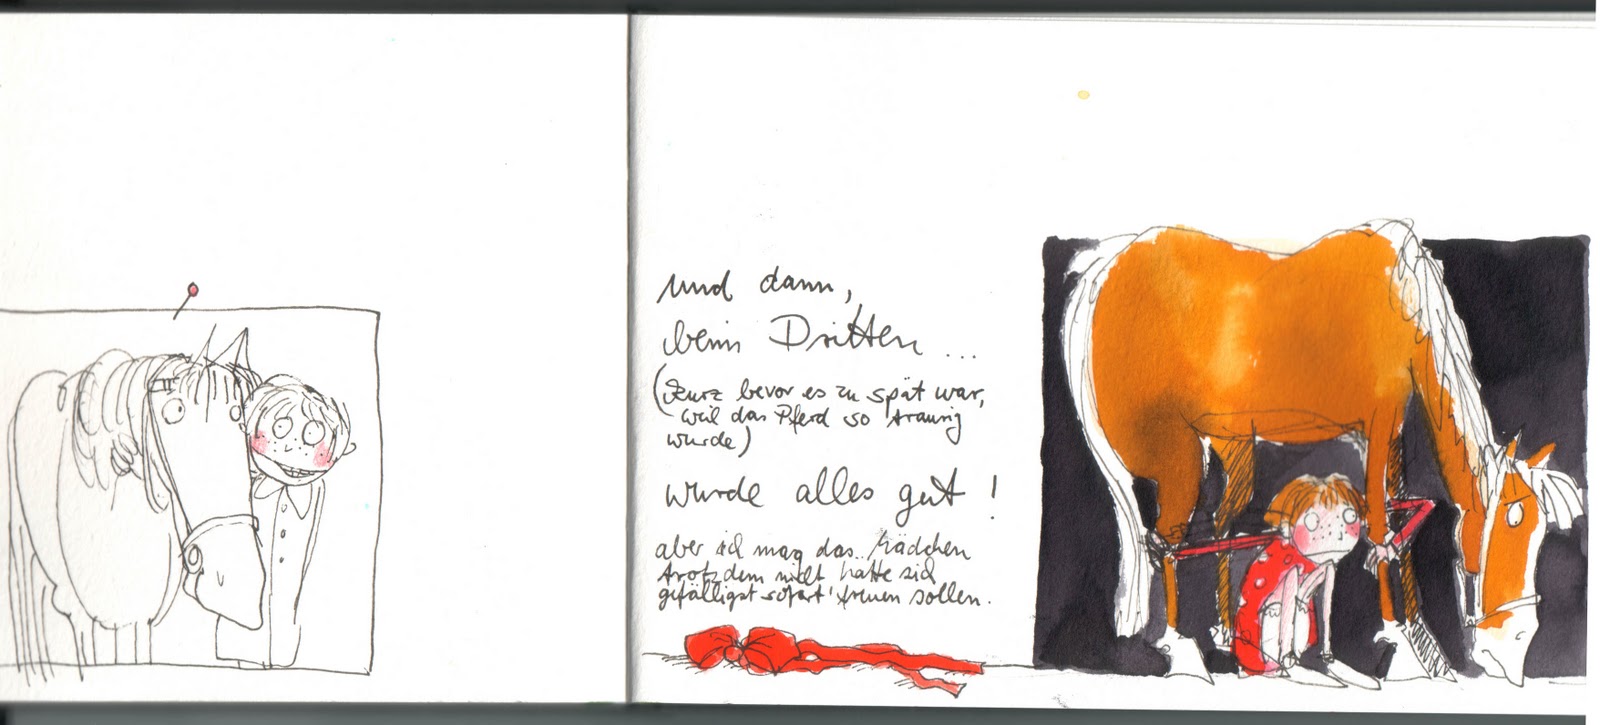 und dann,
beim Dritten...
(kurz bevor es zu spät war,
weil das Pferd so traurig
wurde)
wurde alles gut!
aber ich mag das Mädchen
trotzdem nicht hätte sich
gefälligst sofort freuen sollen.